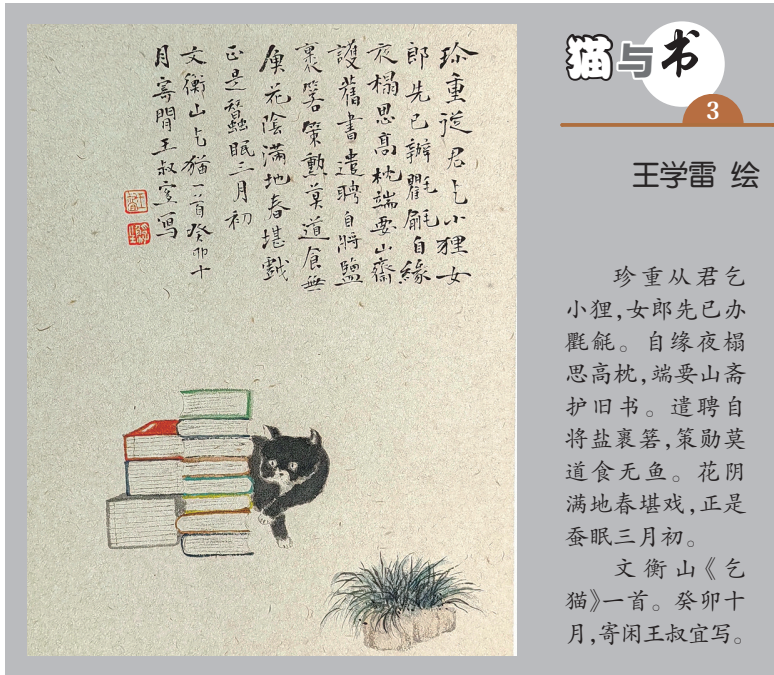 珍重從君乞小狸女
郎先已辦氍毹自緣
夜榻思高枕端要山齋
護舊書遣聘自將鹽
裹箬策勳莫道食無
魚花陰滿地春堪戲
正是蠶眠三月初
文衡山乞猫一首癸卯十
月寄閒王叔宜寫
猫与书
3
王学雷 绘
珍重从君乞
小狸,女郎先已办
氍毹。自缘夜榻
思高枕,端要山斋
护旧书。遣聘自
将盐裹箬,策勋莫
道食无鱼。花阴
满地春堪戏,正是
蚕眠三月初。
文衡山《乞
猫》一首。癸卯十
月,寄闲王叔宜写。